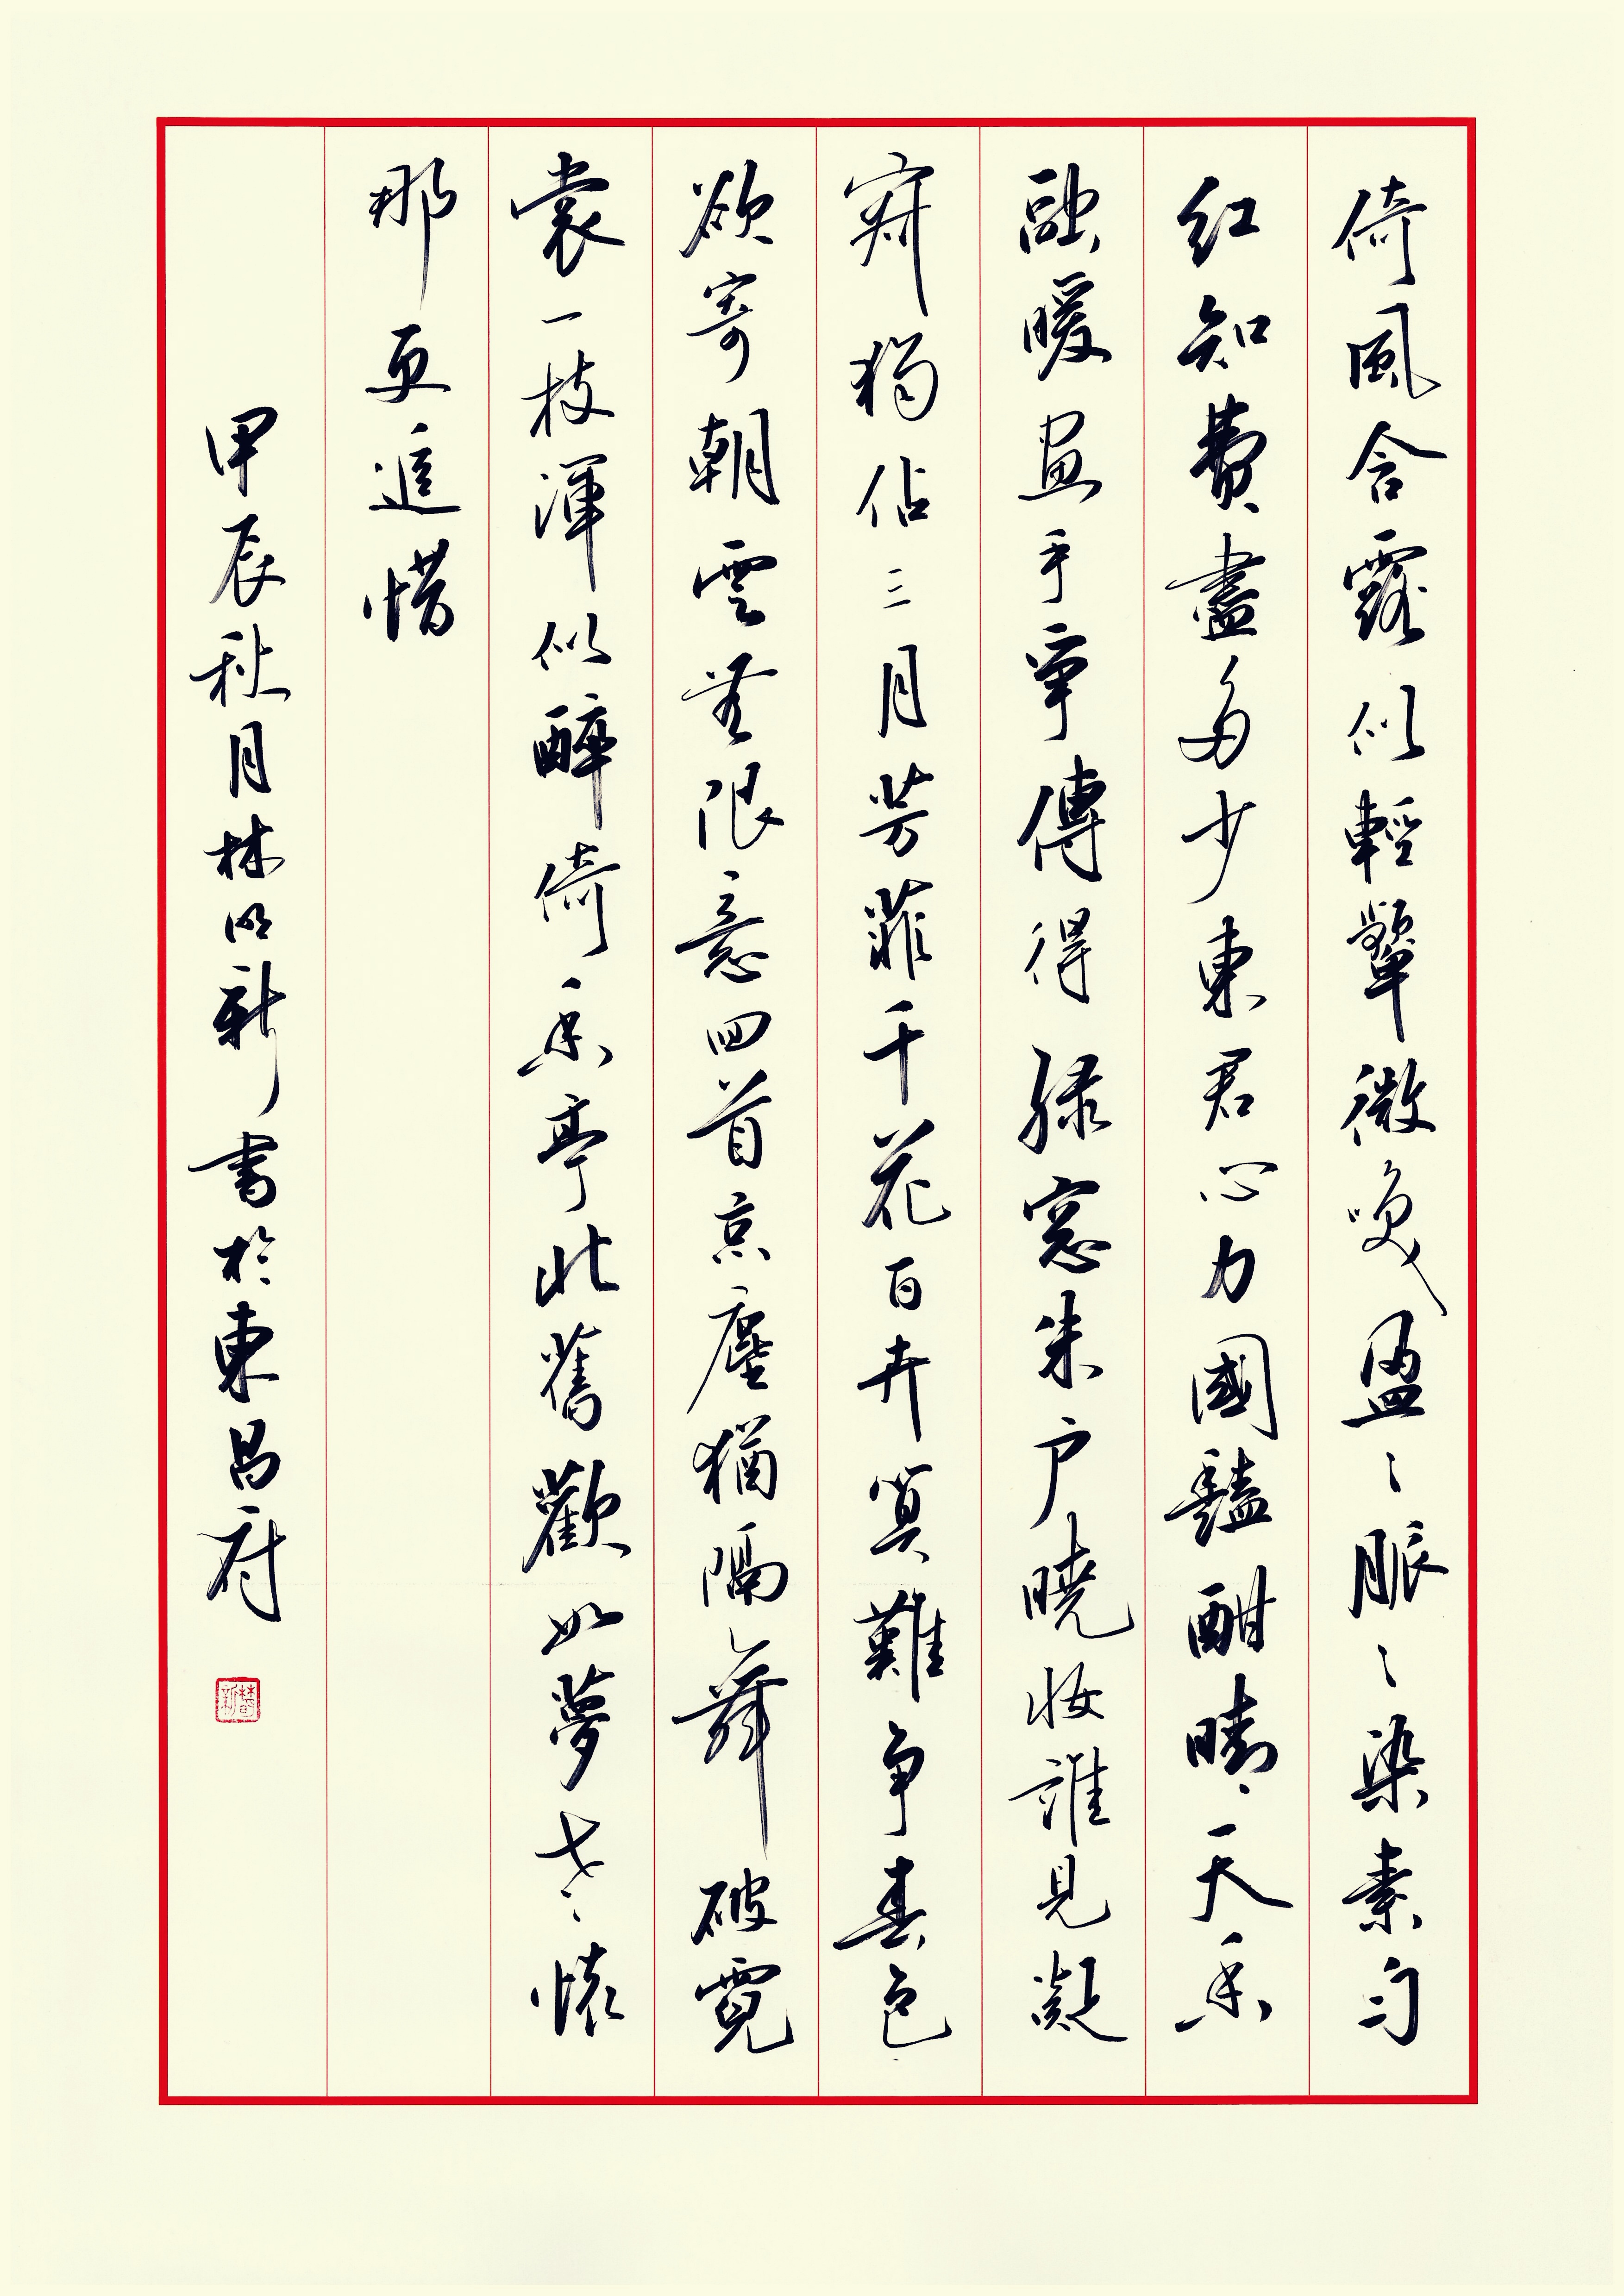 倚風含露似輕顰微笑盈〻脈〻染素勻
紅知費盡多少東君心力國豔酣晴天香
融暖畫手爭傳得綠窗朱户曉妝誰見凝
寂獨佔三月芳菲千花百卉算難爭春色
欲寄朝雲無限意回首京塵猶隔舞破霓
裳一枝渾似醉倚香亭北舊歡如夢老〻懷
那更追惜
甲辰秋月林明新書於東昌府